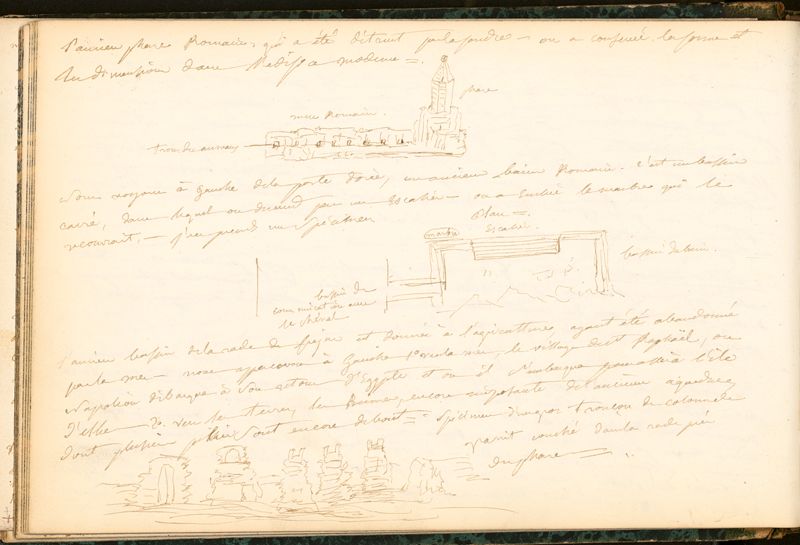 l'ancien phare Romain, qui a été détruit par la foudre — on a conservé la forme et
les dimensions dans l'édifice moderne =.
phare
mur Romain.
trous de anneaux
Nous voyons à gauche de la porte Dorée, un ancien bain Romain. C'est un bassin
carré, dans lequel on descend par un Escalier — on a enlevé le marbre qui le
recouvrait. — j'en prends un Spécimen
Plan =.
Escalier.
marbre
bassin de bain.
bassin de
communication avec
le chenal
l'ancien bassin de la rade de fréjus est donné à l'agriculture, ayant été abandonné
par la mer — nous apercevons à gauche vers la mer, le village de St Raphaël, où
Napoléon débarqua à son retour d'Egypte et où il s'embarqua pour aller à l'île
D'elbe — vers les terres, les Ruines, encore de l'ancien aqueduc,
dont plusieurs piliers sont encore debout = Spécimen d'un gros tronçon de colonne
granit couché dans la rade près
du phare —